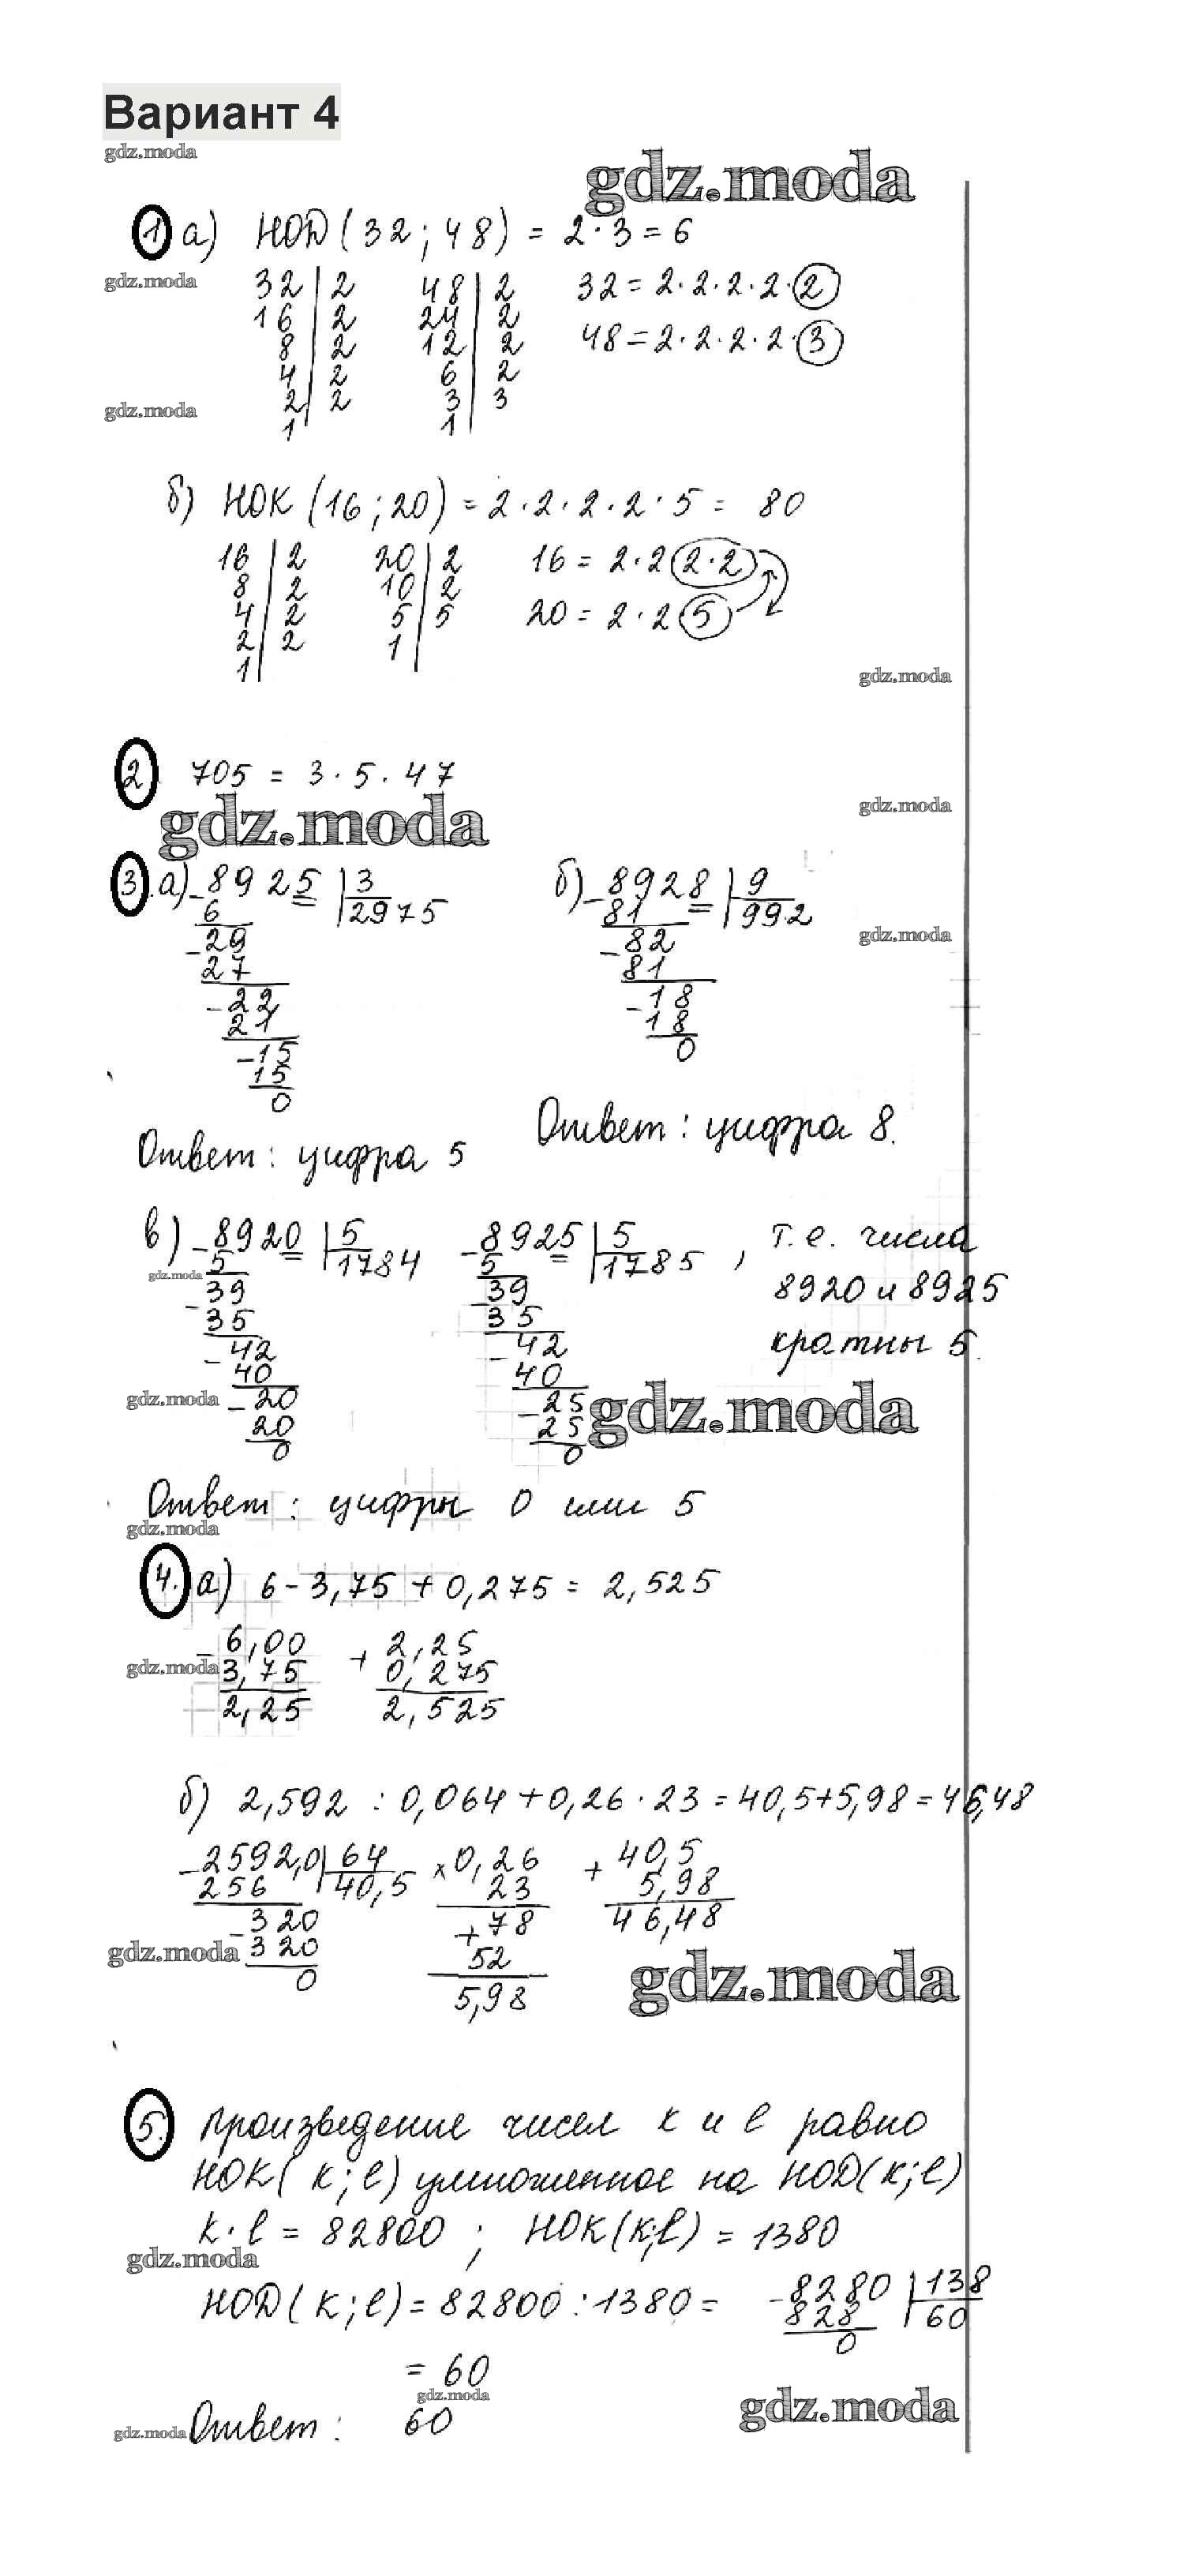 Вариант 4
gdz.moda
gdz.moda
1 а) НОД (32 ; 48) = 2·3 = 6
gdz.moda
32 | 2 48 | 2 32 = 2·2·2·2·2
16 | 2 24 | 2 48 = 2·2·2·2·3
8 | 2 12 | 2
4 | 2 6 | 2
gdz.moda
2 | 2 3 | 3
1 1
б) НОК (16 ; 20) = 2·2·2·2·5 = 80
16 | 2 20 | 2 16 = 2·2 2·2
8 | 2 10 | 2
4 | 2 5 | 5 20 = 2·2 5
2 | 2 1
1
gdz.moda
2 705 = 3·5·47
gdz.moda
gdz.moda
3. а) -8925 | 3 б) -8928 | 9
6 | 2975 81 | 992
gdz.moda
-29 -82
27 81
-22 -18
21 18
-15 0
15
0
Ответ: цифра 5 Ответ: цифра 8.
в) -8920 | 5 -8925 | 5 , т.е. числа
5 | 1784 5 | 1785
gdz.moda
-39 -39 8920 и 8925
35 35
-42 -42 кратны 5.
40 40
gdz.moda
-20 -25
gdz.moda
20 25
0 0
Ответ: цифры 0 или 5
gdz.moda
4. а) 6 - 3,75 + 0,275 = 2,525
-6,00 + 2,25
gdz.moda
3,75 0,275
2,25 2,525
б) 2,592 : 0,064 + 0,26 · 23 = 40,5+5,98 = 46,48
-2592,0 | 64 × 0,26 + 40,5
256 | 40,5 23 5,98
-320 +78 46,48
gdz.moda
320 52
gdz.moda
0 5,98
5. Произведение чисел k и l равно
НОК( k ; l) умноженное на НОД(k; l)
k·l = 82800 ; НОК(k;l) = 1380
gdz.moda
НОД( k ; l) = 82800 : 1380 = -8280 | 138
828 | 60
0
= 60
gdz.moda
gdz.moda
gdz.moda
Ответ: 60